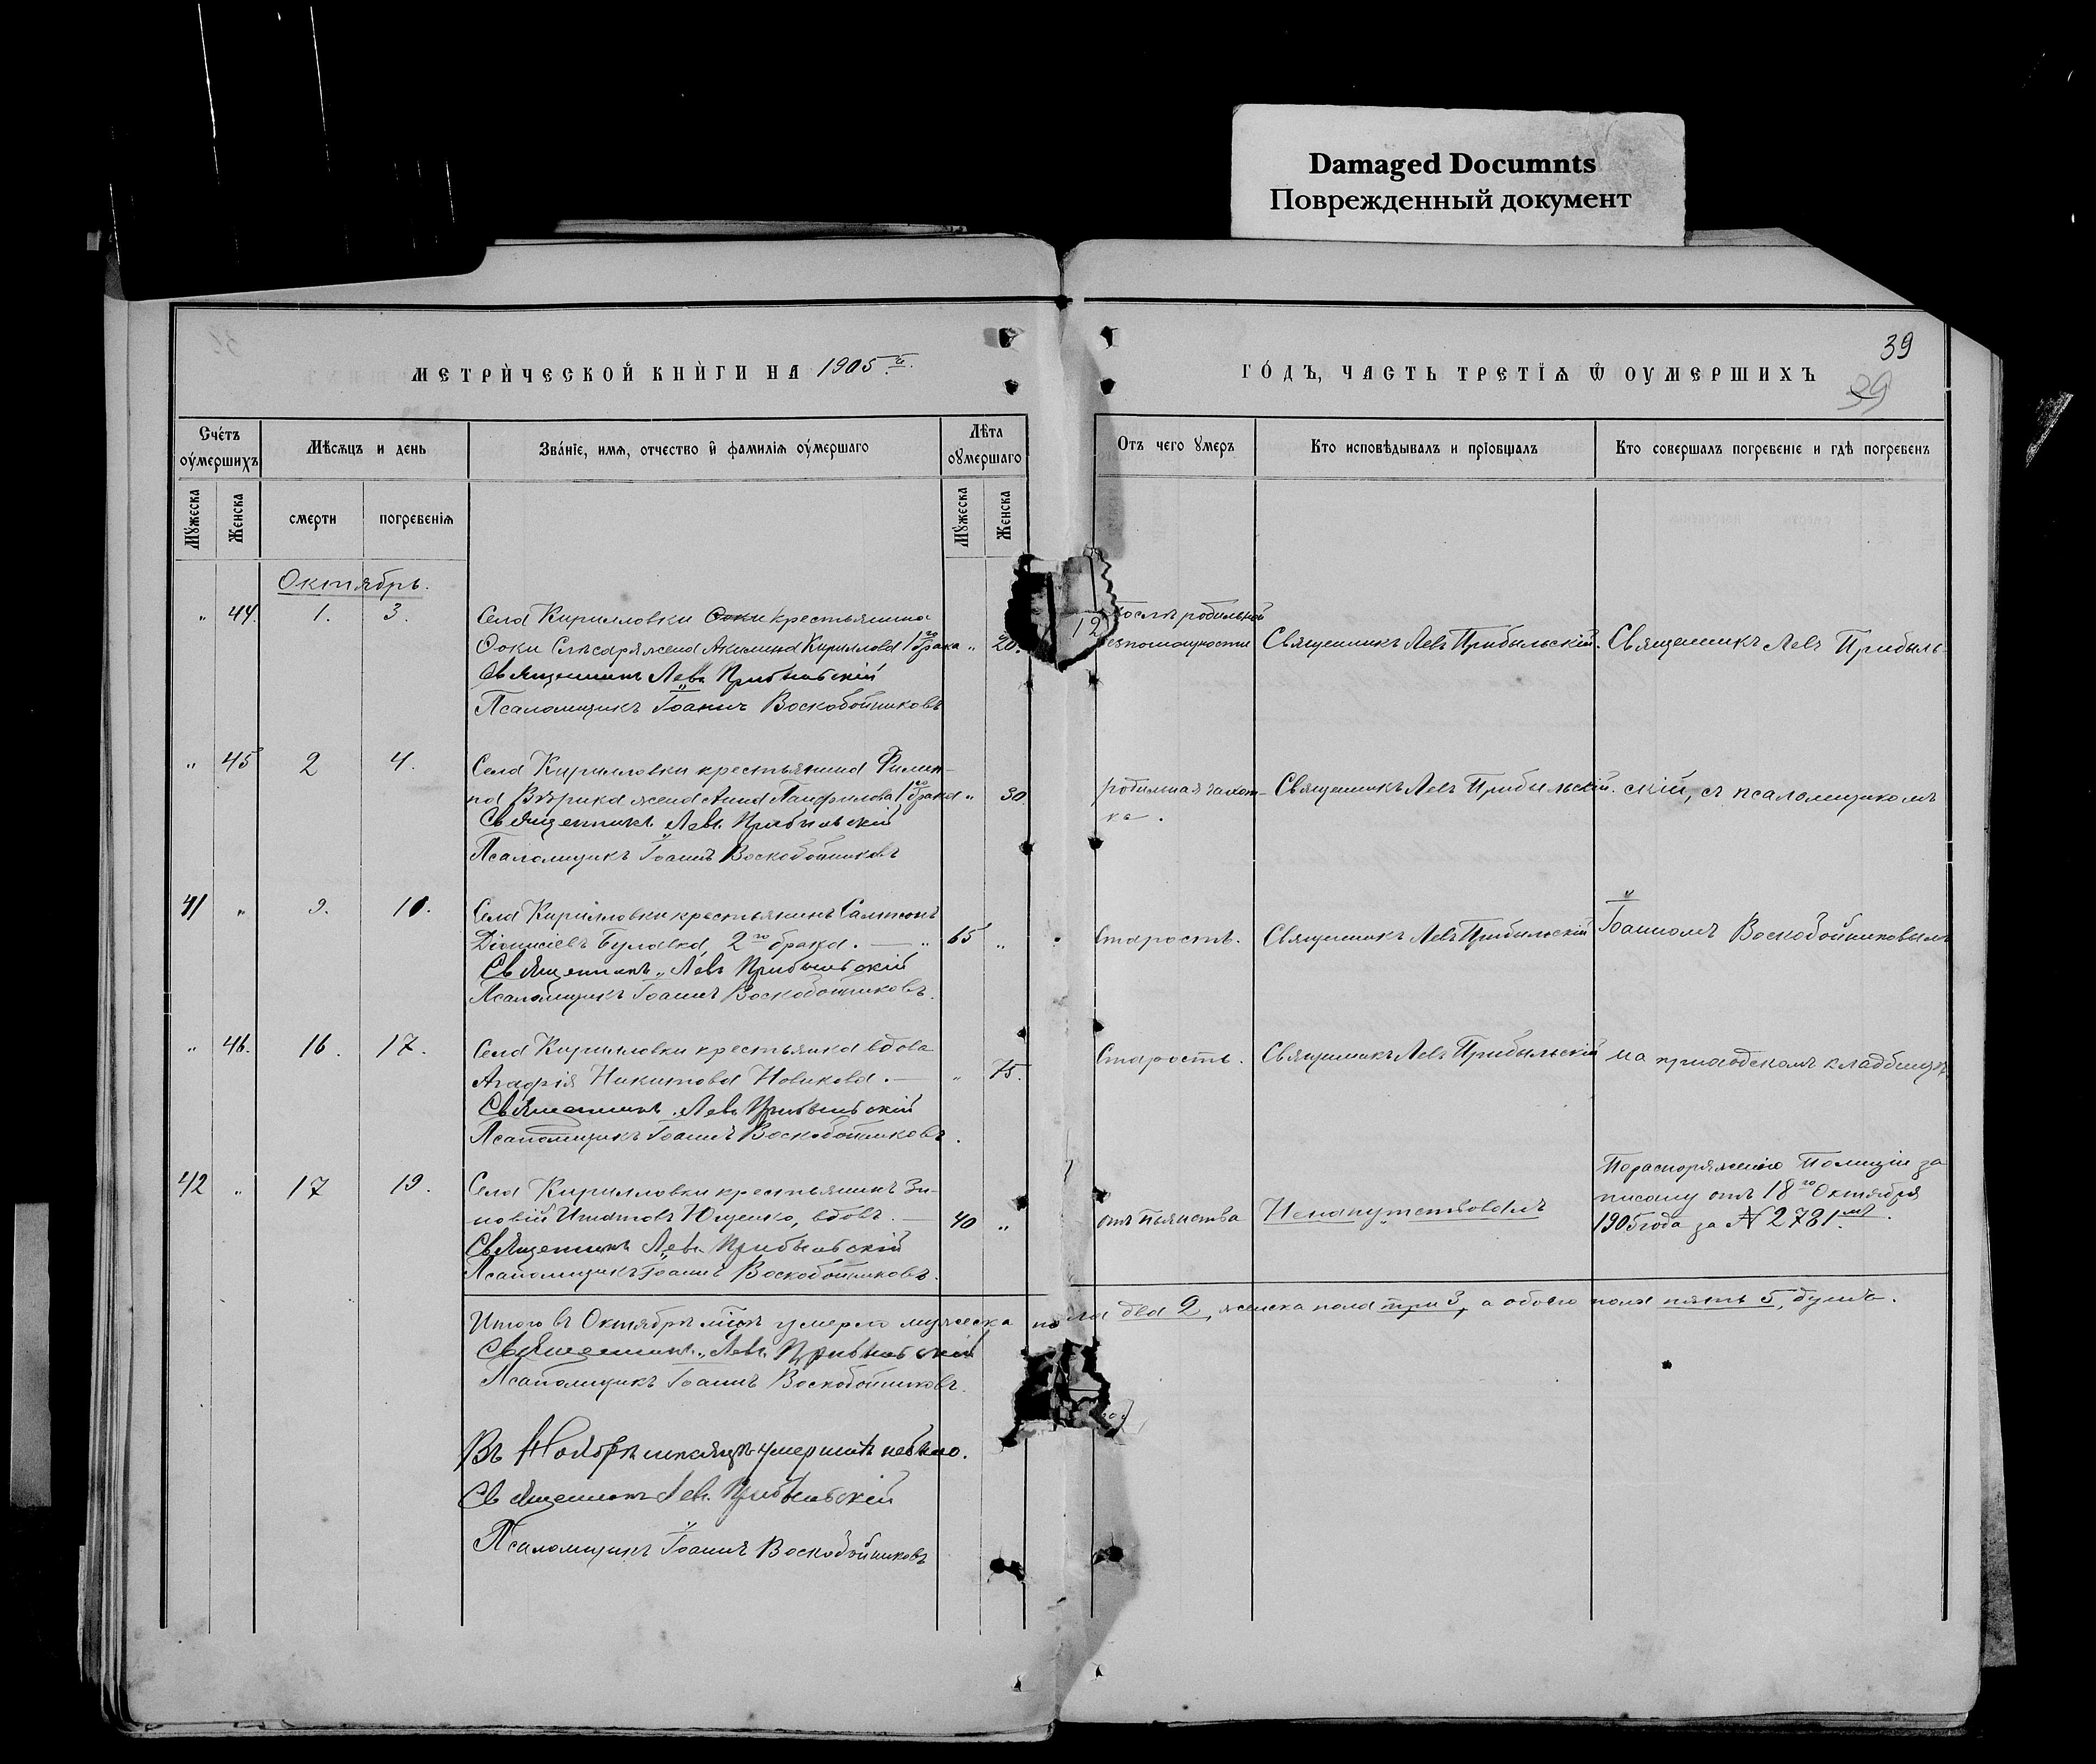 Damaged Documnts
Поврежденный документ
39
39
МЕТРИЧЕСКОЙ КНИГИ НА 1905 й.
ГОДЪ, ЧАСТЬ ТРЕТІЯ Ѿ ОУМЕРШИХЪ
Счетъ оумершихъ
Мѣсяцъ и день
Званіе, имя, отчество и фамилія оумершаго
Лѣта оумершаго
Отъ чего умеръ
Кто исповѣдывалъ и пріобщалъ
Кто совершалъ погребеніе и гдѣ погребенъ
Мужеска
Женска
смерти
погребенія
Мужеска
Женска
Октябрь.
" 44. 1. 3.
Села Кирилловки крестьянина
Ѳоки Слѣсаря жена Акилина Кириллова 1го брака " 20.
Священникъ Левъ Прибыльскій
Псаломщикъ Іоаннъ Воскобойниковъ
12
послѣ родильной
Священникъ Левъ Прибыльскій.
Священникъ Левъ Прибыль-
" 45 2 4.
Села Кирилловки крестьянина Филип-
па жена Анна Панфилова 1го брака " 30
Священникъ Левъ Прибыльскій
Псаломщикъ Іоаннъ Воскобойниковъ
родимная
ка.
Священникъ Левъ Прибыльскій.
скій, съ псаломщикомъ
41 " 9. 10.
Села Кирилловки крестьянинъ Сампсонъ
Діонисіевъ Булавка, 2го брака. — 65 "
Священникъ Левъ Прибыльскій
Псаломщикъ Іоаннъ Воскобойниковъ.
Старость.
Священникъ Левъ Прибыльскій
Іоанномъ Воскобойниковымъ
" 46. 16. 17.
Села Кирилловки крестьянка вдова
Агафія Никитова Новикова. — " 75.
Священникъ Левъ Прибыльскій
Псаломщикъ Іоаннъ Воскобойниковъ.
Старость.
Священникъ Левъ Прибыльскій
на приходскомъ кладбищѣ
42 " 17 19.
Села Кирилловки крестьянинъ Зи-
новій Игнатовъ Ющенко, вдовъ. — 40 "
Священникъ Левъ Прибыльскій
Псаломщикъ Іоаннъ Воскобойниковъ.
отъ пьянства
Ненапутствованъ
По распоряженію Полиціи за
писану отъ 18го Октября
1905 года за № 2781мъ.
Итого въ Октябрѣ м-цѣ умерло мужеска пола два 2, женска пола три 3, а обоего пола пять 5, душъ.
Священникъ Левъ Прибыльскій
Псаломщикъ Іоаннъ Воскобойниковъ.
Въ Ноябрѣ мѣсяцѣ умершихъ небыло.
Священникъ Левъ Прибыльскій
Псаломщикъ Іоаннъ Воскобойниковъ